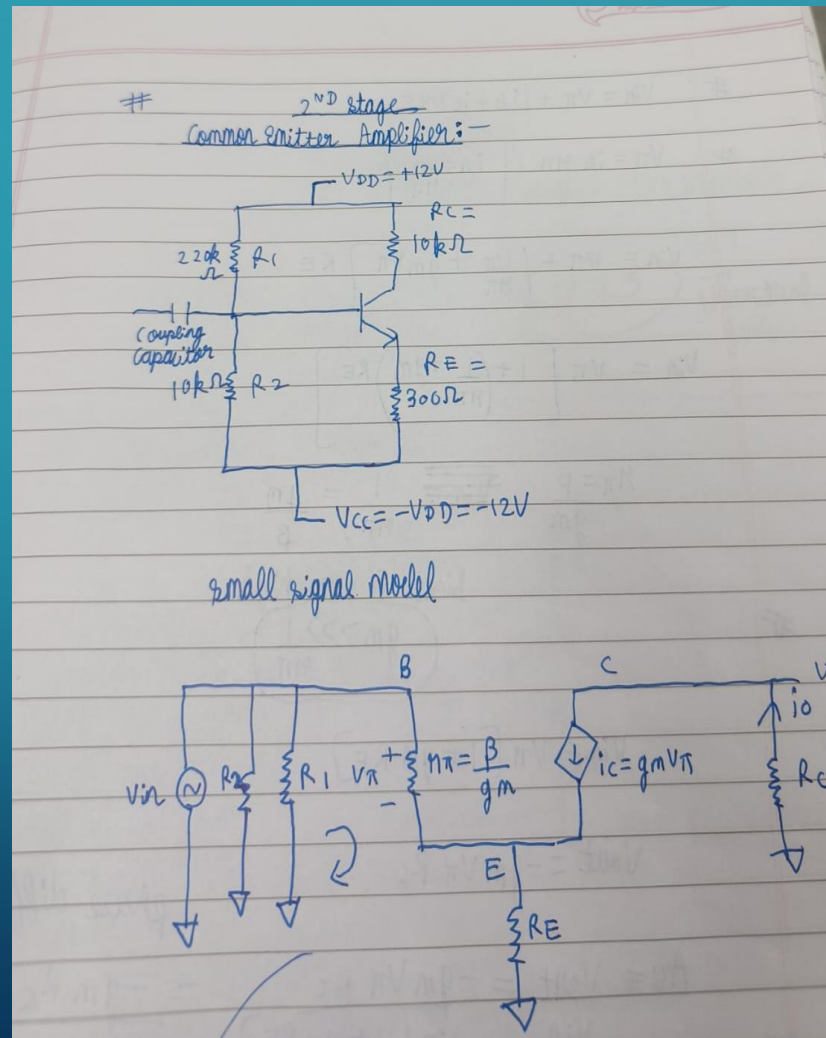 #
2ND stage
Common Emitter Amplifier:-
VDD=+12V
RC=
10kΩ
220k
Ω
R1
Coupling
Capacitor
10kΩ
R2
RE=
300Ω
VCC=-VDD=-12V
small signal model
B
C
V
io
Vin
R2
R1
Vπ
+
-
rπ=β/gm
ic=gmVπ
RC
E
RE